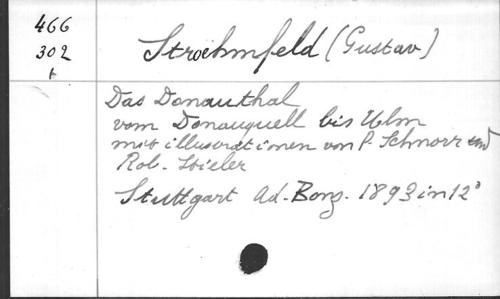 466
302
t
Stroehmfeld (Gustav)
Das Donauthal
vom Donauquell bis Ulm
mit illustrationen von P. Schnorr und
Rob. Stieler
Stuttgart Ad. Bonz. 1893 in 12°